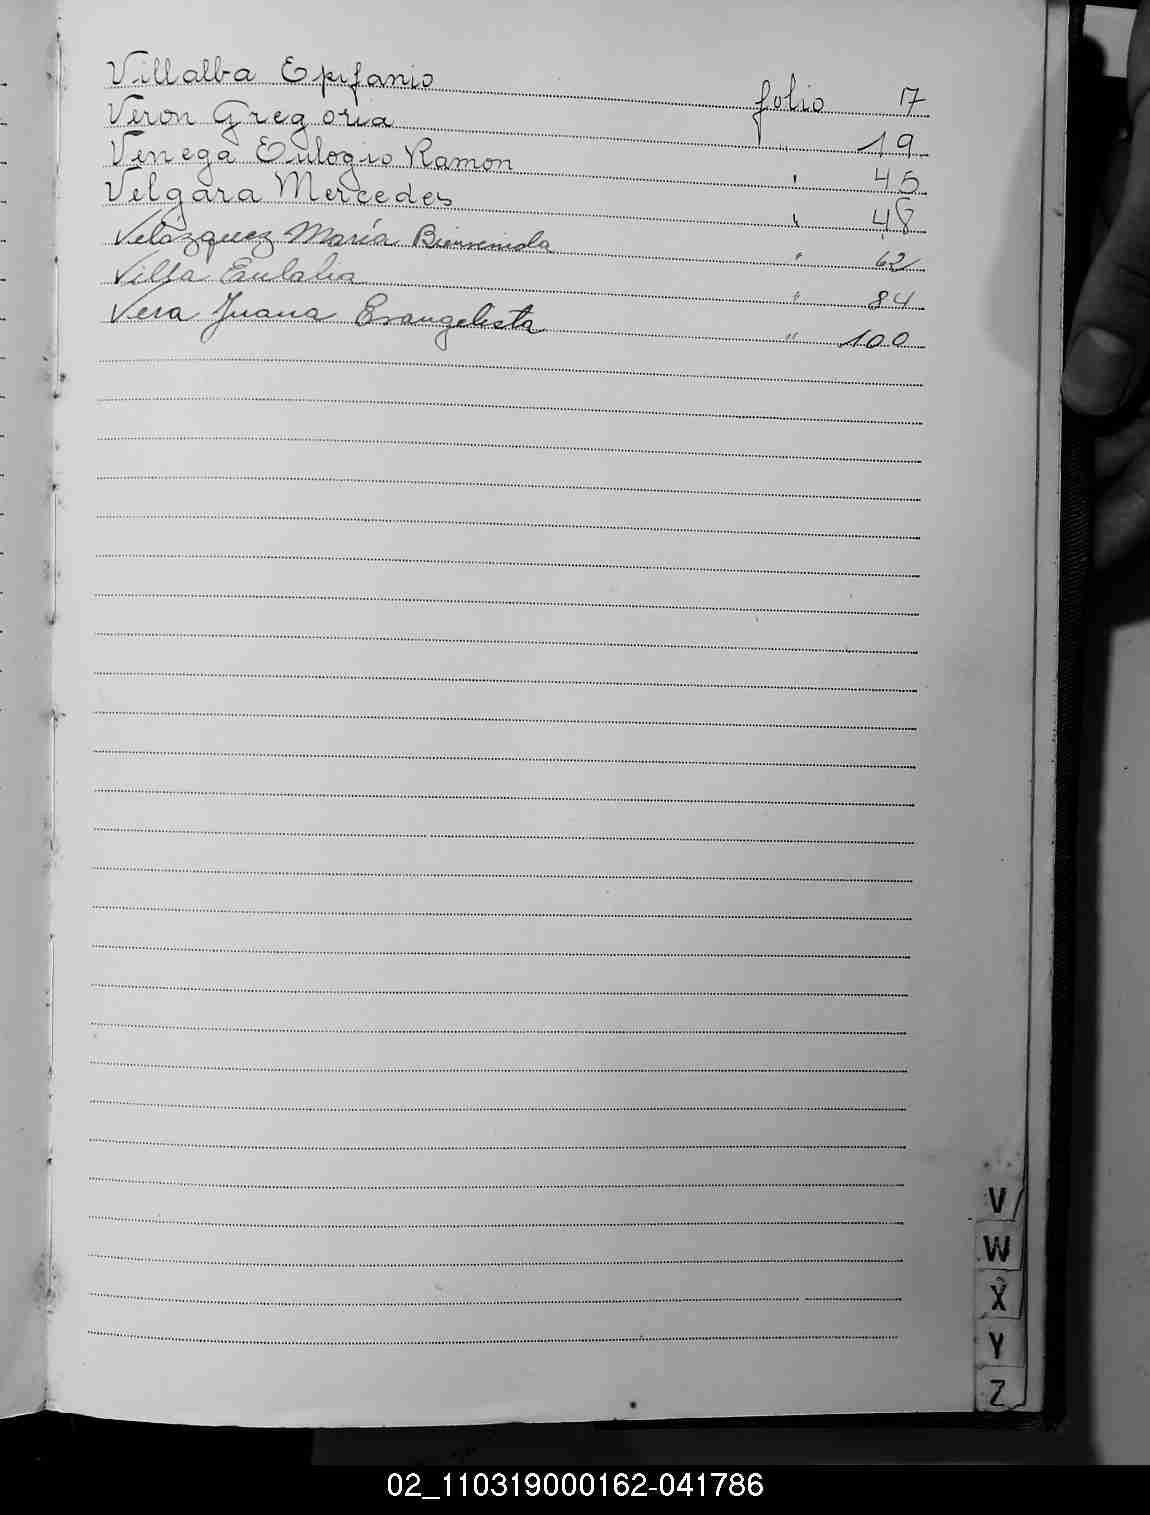 Villalba Epifanio folio 7
Veron Gregoria " 19
Venega Eulogio Ramon " 45
Velgara Mercedes " 48
Velázquez María Bienvenida " 62
Villa Eulalia " 84
Vera Juana Evangelista " 100
V
W
X
Y
Z
02_110319000162-041786